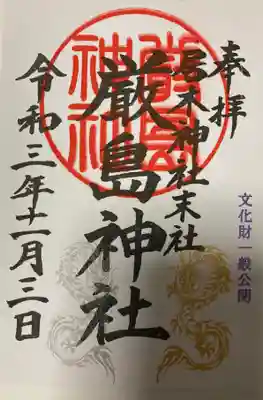 奉拝
文化財一般公開
居木神社末社
厳島神社
嚴島神社
令和三年十一月三日